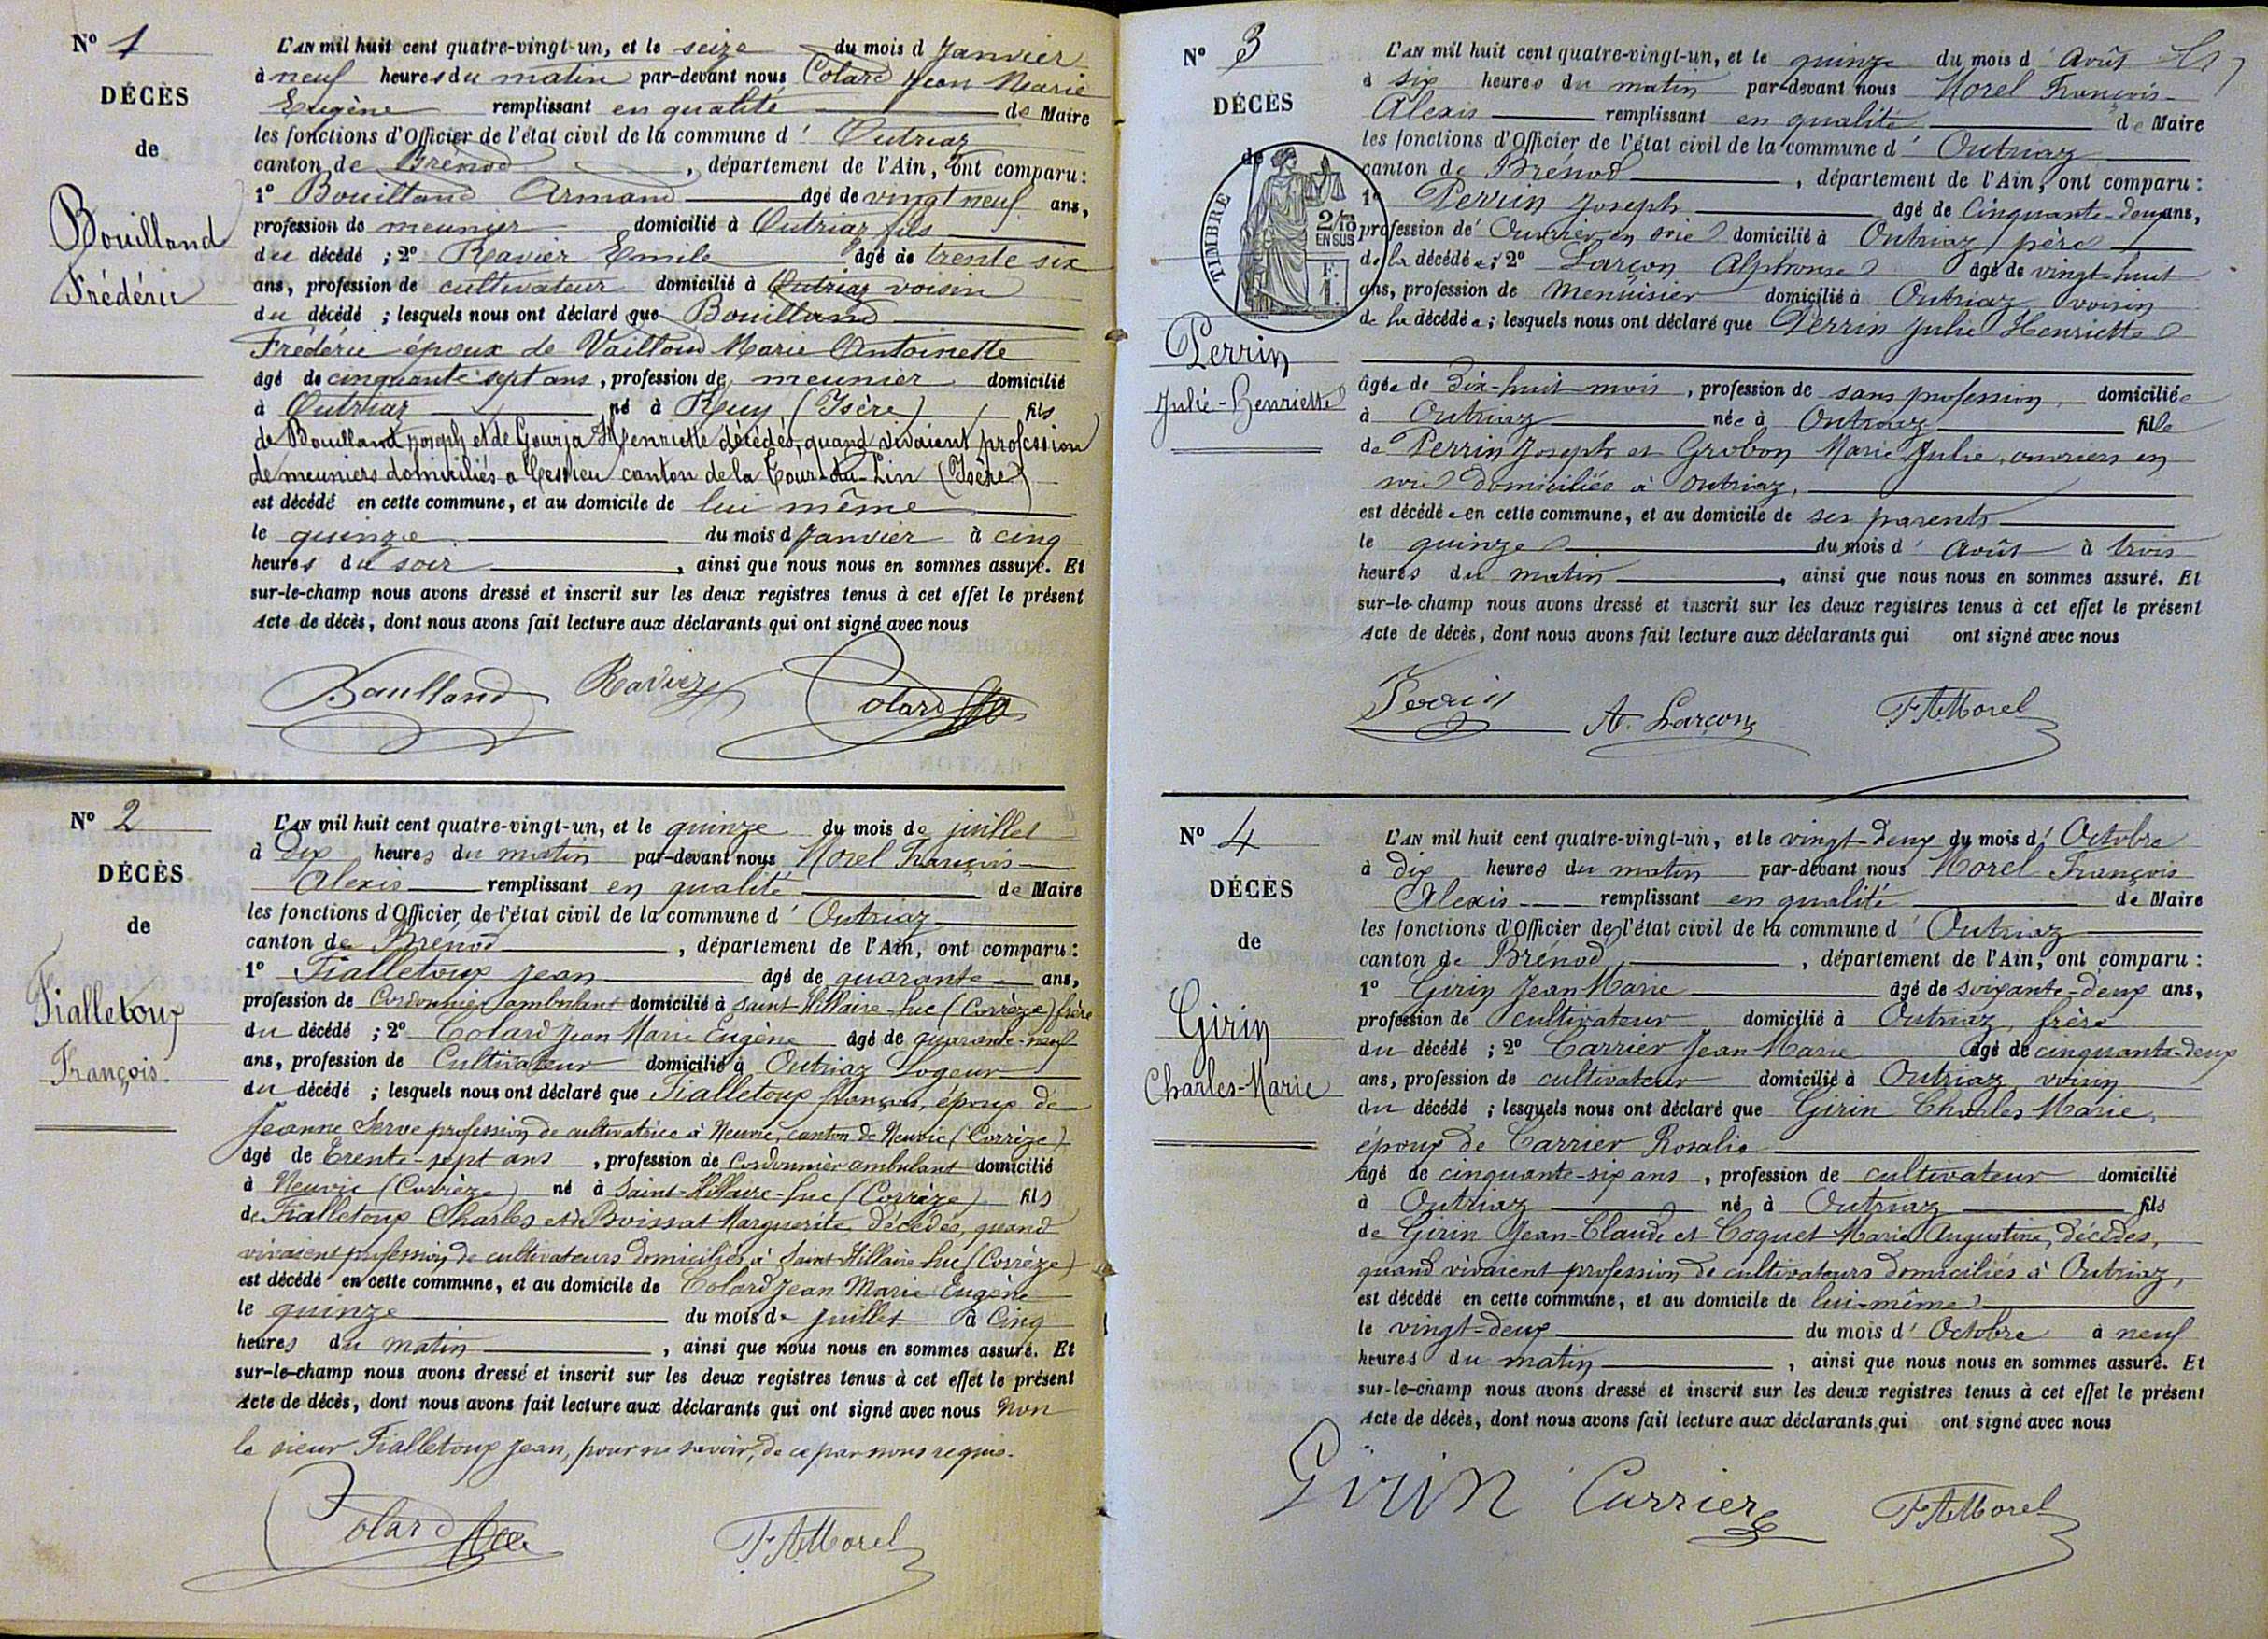 N° 1
DÉCÈS
de
Bouilland
Frédéric
L'AN mil huit cent quatre-vingt-un, et le seize du mois d Janvier
à neuf heures du matin par-devant nous Colard Jean Marie
Eugène remplissant en qualité de Maire
les fonctions d'Officier de l'état civil de la commune d' Outriaz
canton de Brénod, département de l'Ain, ont comparu:
1° Bouilland Armand âgé de vingt neuf ans,
profession de meunier domicilié à Outriaz fils
du décédé ; 2° Ravier Emile âgé de trente six
ans, profession de cultivateur domicilié à Outriaz voisin
du décédé ; lesquels nous ont déclaré que Bouilland
Frédéric époux de Vailloud Marie Antoinette
âgé de cinquante sept ans, profession de meunier domicilié
à Outriaz né à Ruy (Isère) fils
de Bouilland joseph et de Gourja Henriette décédés, quand vivaient profession
de meuniers domiciliés a Cessieu canton de la Tour-du-Pin (Isère)
est décédé en cette commune, et au domicile de lui même
le quinze du mois d Janvier à cinq
heures du soir, ainsi que nous nous en sommes assuré. Et
sur-le-champ nous avons dressé et inscrit sur les deux registres tenus à cet effet le présent
Acte de décès, dont nous avons fait lecture aux déclarants qui ont signé avec nous
Bouilland Ravier Colard
N° 2
DÉCÈS
de
Fialletoux
François
L'AN mil huit cent quatre-vingt-un, et le quinze du mois de juillet
à Dix heures du matin par-devant nous Morel François
Alexis remplissant en qualité de Maire
les fonctions d'Officier de l'état civil de la commune d' Outriaz
canton de Brénod, département de l'Ain, ont comparu:
1° Fialletoux Jean âgé de quarante ans,
profession de Cordonnier ambulant domicilié à Saint-Hillaire-Luc (Corrèze) frère
du décédé ; 2° Colard Jean Marie Eugène âgé de quarante-neuf
ans, profession de Cultivateur domicilié à Outriaz Logeur
du décédé ; lesquels nous ont déclaré que Fialletoux françois, époux de
Jeanne Serve profession de cultivatrice à Neuvic, canton de Neuvic (Corrèze)
âgé de Trente-sept ans, profession de Cordonnier ambulant domicilié
à Neuvic (Corrèze) né à Saint-Hillaire-Luc (Corrèze) fils
de Fialletoux Charles et de Boissat Marguerite, décédés, quand
vivaient profession de cultivateurs domiciliés à Saint-Hillaire Luc (Corrèze)
est décédé en cette commune, et au domicile de Colard Jean Marie Eugène
le quinze du mois de juillet à Cinq
heures du matin, ainsi que nous nous en sommes assuré. Et
sur-le-champ nous avons dressé et inscrit sur les deux registres tenus à cet effet le présent
Acte de décès, dont nous avons fait lecture aux déclarants qui ont signé avec nous Non
le sieur Fialletoux Jean, pour ne savoir, de ce par nous requis.
Colard F. A. Morel
N° 3
DÉCÈS
de
TIMBRE
2/10 EN SUS
F. 1.
Perrin
Julie-Henriette
L'AN mil huit cent quatre-vingt-un, et le quinze du mois d' Août
à six heures du matin par-devant nous Morel François
Alexis remplissant en qualité de Maire
les fonctions d'Officier de l'état civil de la commune d' Outriaz
canton de Brénod, département de l'Ain, ont comparu:
1° Perrin Joseph âgé de Cinquante-deux ans,
profession de Ouvrier en soie domicilié à Outriaz, père
de la décédée ; 2° Larçon Alphonse âgé de vingt-huit
ans, profession de Menuisier domicilié à Outriaz voisin
de la décédée ; lesquels nous ont déclaré que Perrin Julie Henriette
âgée de Dix-huit mois, profession de sans profession domiciliée
à Outriaz née à Outriaz fille
de Perrin Joseph et Grobon Marie Julie, ouvriers en
soie domiciliés à Outriaz,
est décédée en cette commune, et au domicile de ses parents
le quinze du mois d' Août à trois
heures du matin, ainsi que nous nous en sommes assuré. Et
sur-le-champ nous avons dressé et inscrit sur les deux registres tenus à cet effet le présent
Acte de décès, dont nous avons fait lecture aux déclarants qui ont signé avec nous
Perrin A. Larçon F A Morel
N° 4
DÉCÈS
de
Girin
Charles-Marie
L'AN mil huit cent quatre-vingt-un, et le vingt-deux du mois d' Octobre
à dix heures du matin par-devant nous Morel François
Alexis remplissant en qualité de Maire
les fonctions d'Officier de l'état civil de la commune d' Outriaz
canton de Brénod, département de l'Ain, ont comparu:
1° Girin Jean Marie âgé de soixante-deux ans,
profession de cultivateur domicilié à Outriaz, frère
du décédé ; 2° Carrier Jean Marie âgé de cinquante-deux
ans, profession de cultivateur domicilié à Outriaz, voisin
du décédé ; lesquels nous ont déclaré que Girin Charles Marie,
époux de Carrier Rosalie
âgé de cinquante-six ans, profession de cultivateur domicilié
à Outriaz né à Outriaz fils
de Girin Jean-Claude et Coquet Marie Augustine, décédés,
quand vivaient profession de cultivateurs domiciliés à Outriaz,
est décédé en cette commune, et au domicile de lui-même
le vingt-deux du mois d' Octobre à neuf
heures du matin, ainsi que nous nous en sommes assuré. Et
sur-le-champ nous avons dressé et inscrit sur les deux registres tenus à cet effet le présent
Acte de décès, dont nous avons fait lecture aux déclarants qui ont signé avec nous
Girin Carrier F A Morel